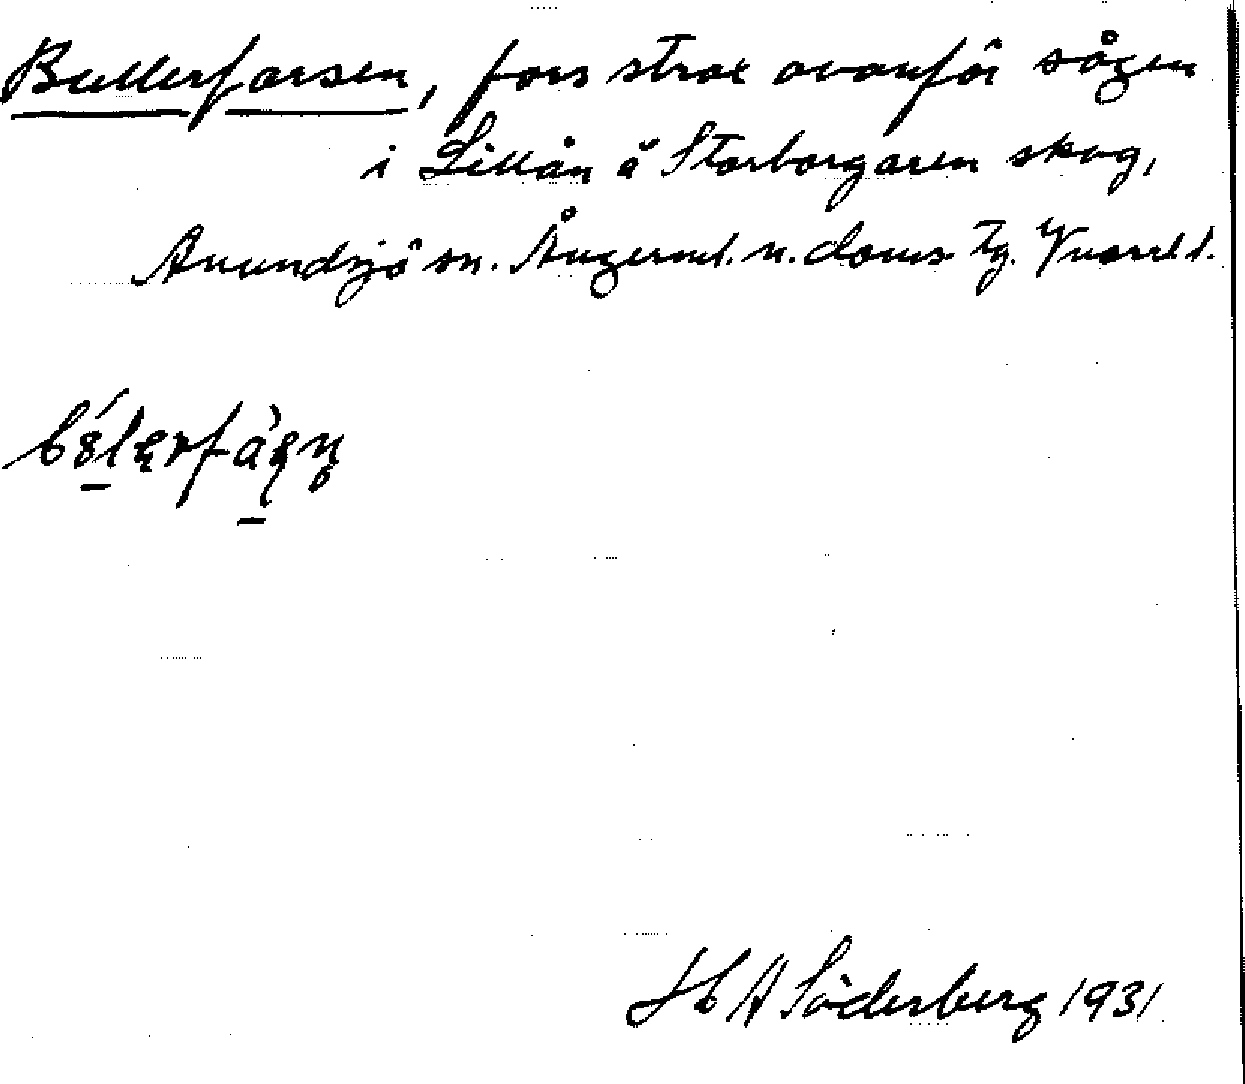 Bullerforsen, fors strax ovanför sågen
i Lillån å Storborgaren skog,
Anundsjö sn. Ångerml. n. doms Tg. Vnorrl l.
H A Söderberg 1931